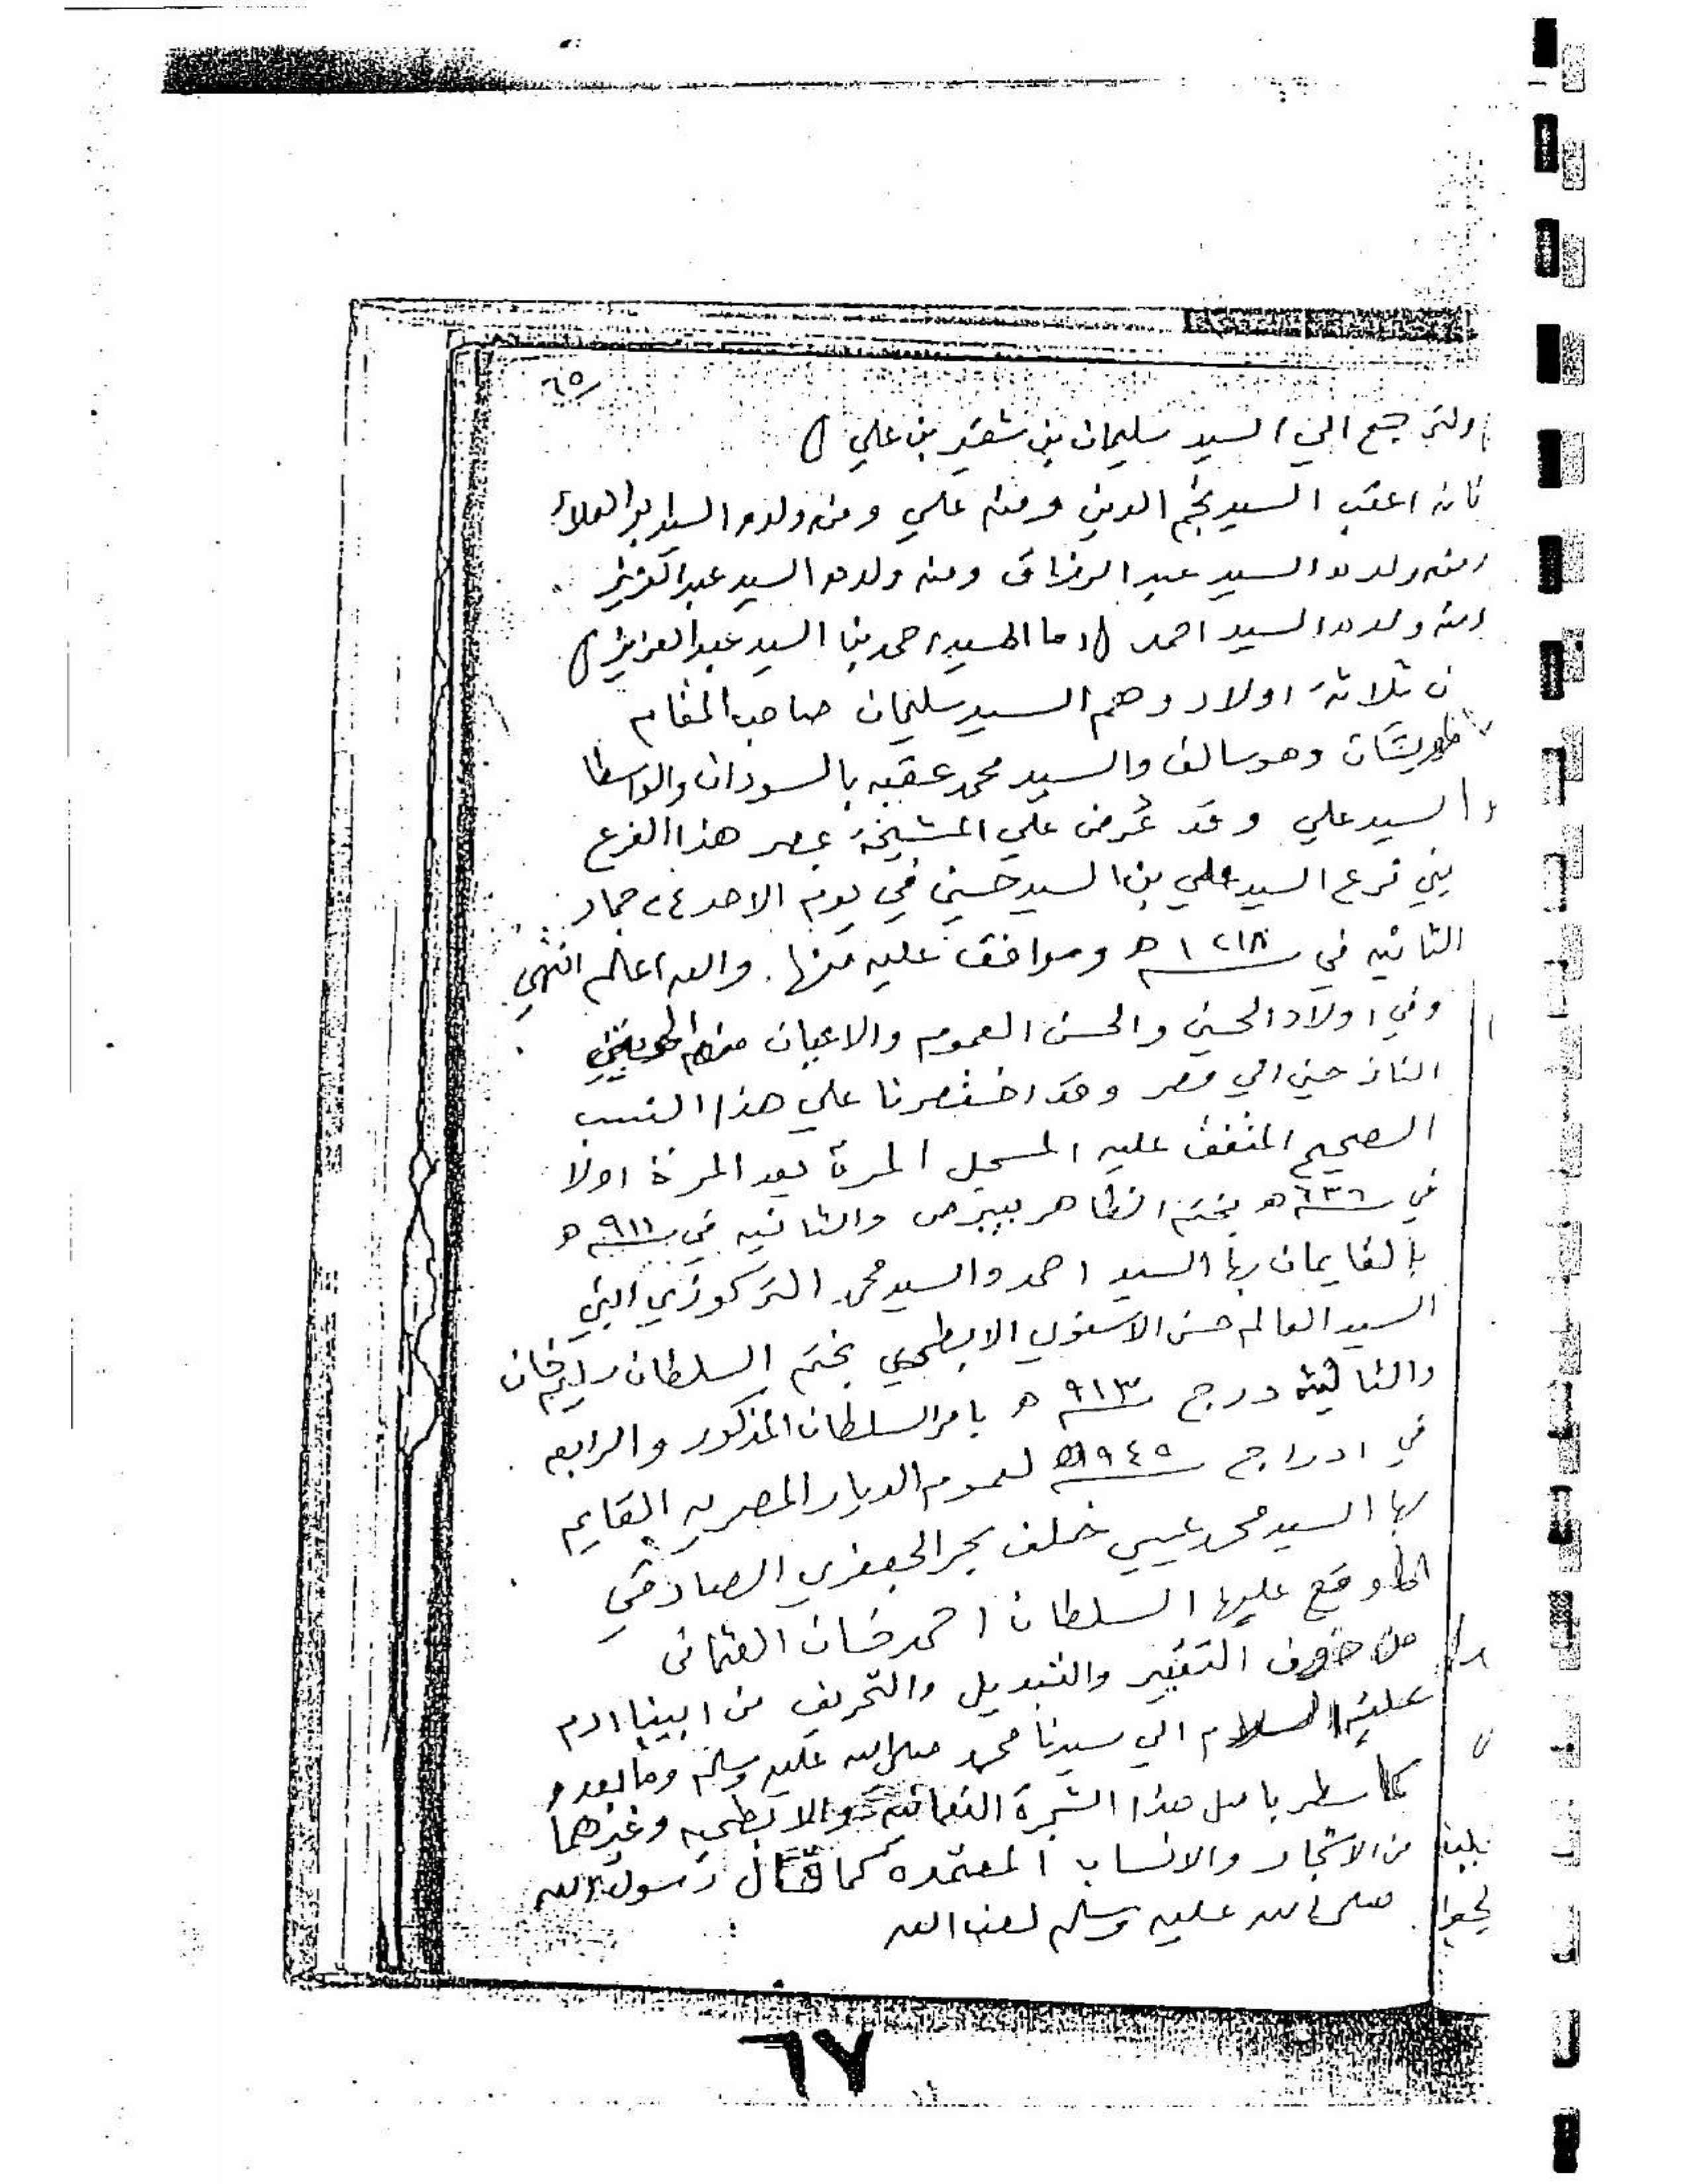 ٦٥
ولنرجع الي السيد سليمان بن شقير بن علي
فانه اعقب السيد نجم الدين ومنه علي ومنه ولده السيد ابو العلاء
ومنه ولده السيد عبد الرزاق ومنه ولده السيد عبد العزيز
ومنه ولده السيد احمد اما السيد احمد بن السيد عبد العزيز
ثلاثة اولاد وهم السيد سليمان صاحب المقام
وهو سالف والسيد محمد عقبه بالسودان والواسطا
والسيد علي وقد عُرض علي المشيخة بمصر هذا الفرع
بني فرع السيد علي بن السيد حسين في يوم الاحد ٢٤ جماد
الثانيه في ١٢١٨ ه وموافق عليه منها. والله اعلم انتهي
وفي اولاد الحسين والحسن العموم والاعيان منهم
النازحين الي مصر وقد اختصرنا علي هذا النسب
الصحيح المتفق عليه المسجل المرة بعد المرة اولا
في ٦٣٦ ه بختم الظاهر بيبرص والثانيه في ٩١١ ه
بالقايمان بها السيد احمد والسيد محمد
السيد العالم حسن الابطحي بختم السلطان سليم خان
والثالثه درج ٩١٣ ه بامر السلطان المذكور والرابعه
في ادراج ٩٤٥ لعموم الديار المصريه القايم
بها السيد محمد عيسي خلف بحر الجعفري الصادقي
وقع عليها السلطان احمد خان العثماني
من خوف التغيير والتبديل والتحريف من ابينا ادم
عليه السلام الي سيدنا محمد صلى الله عليه وسلم وما بعده
كما سطر باصل هذا الشجرة والابطحيه وغيرهما
من الاشجار والانساب المعتمده كما قال رسول الله
صلى الله عليه وسلم لعن الله
٦٧